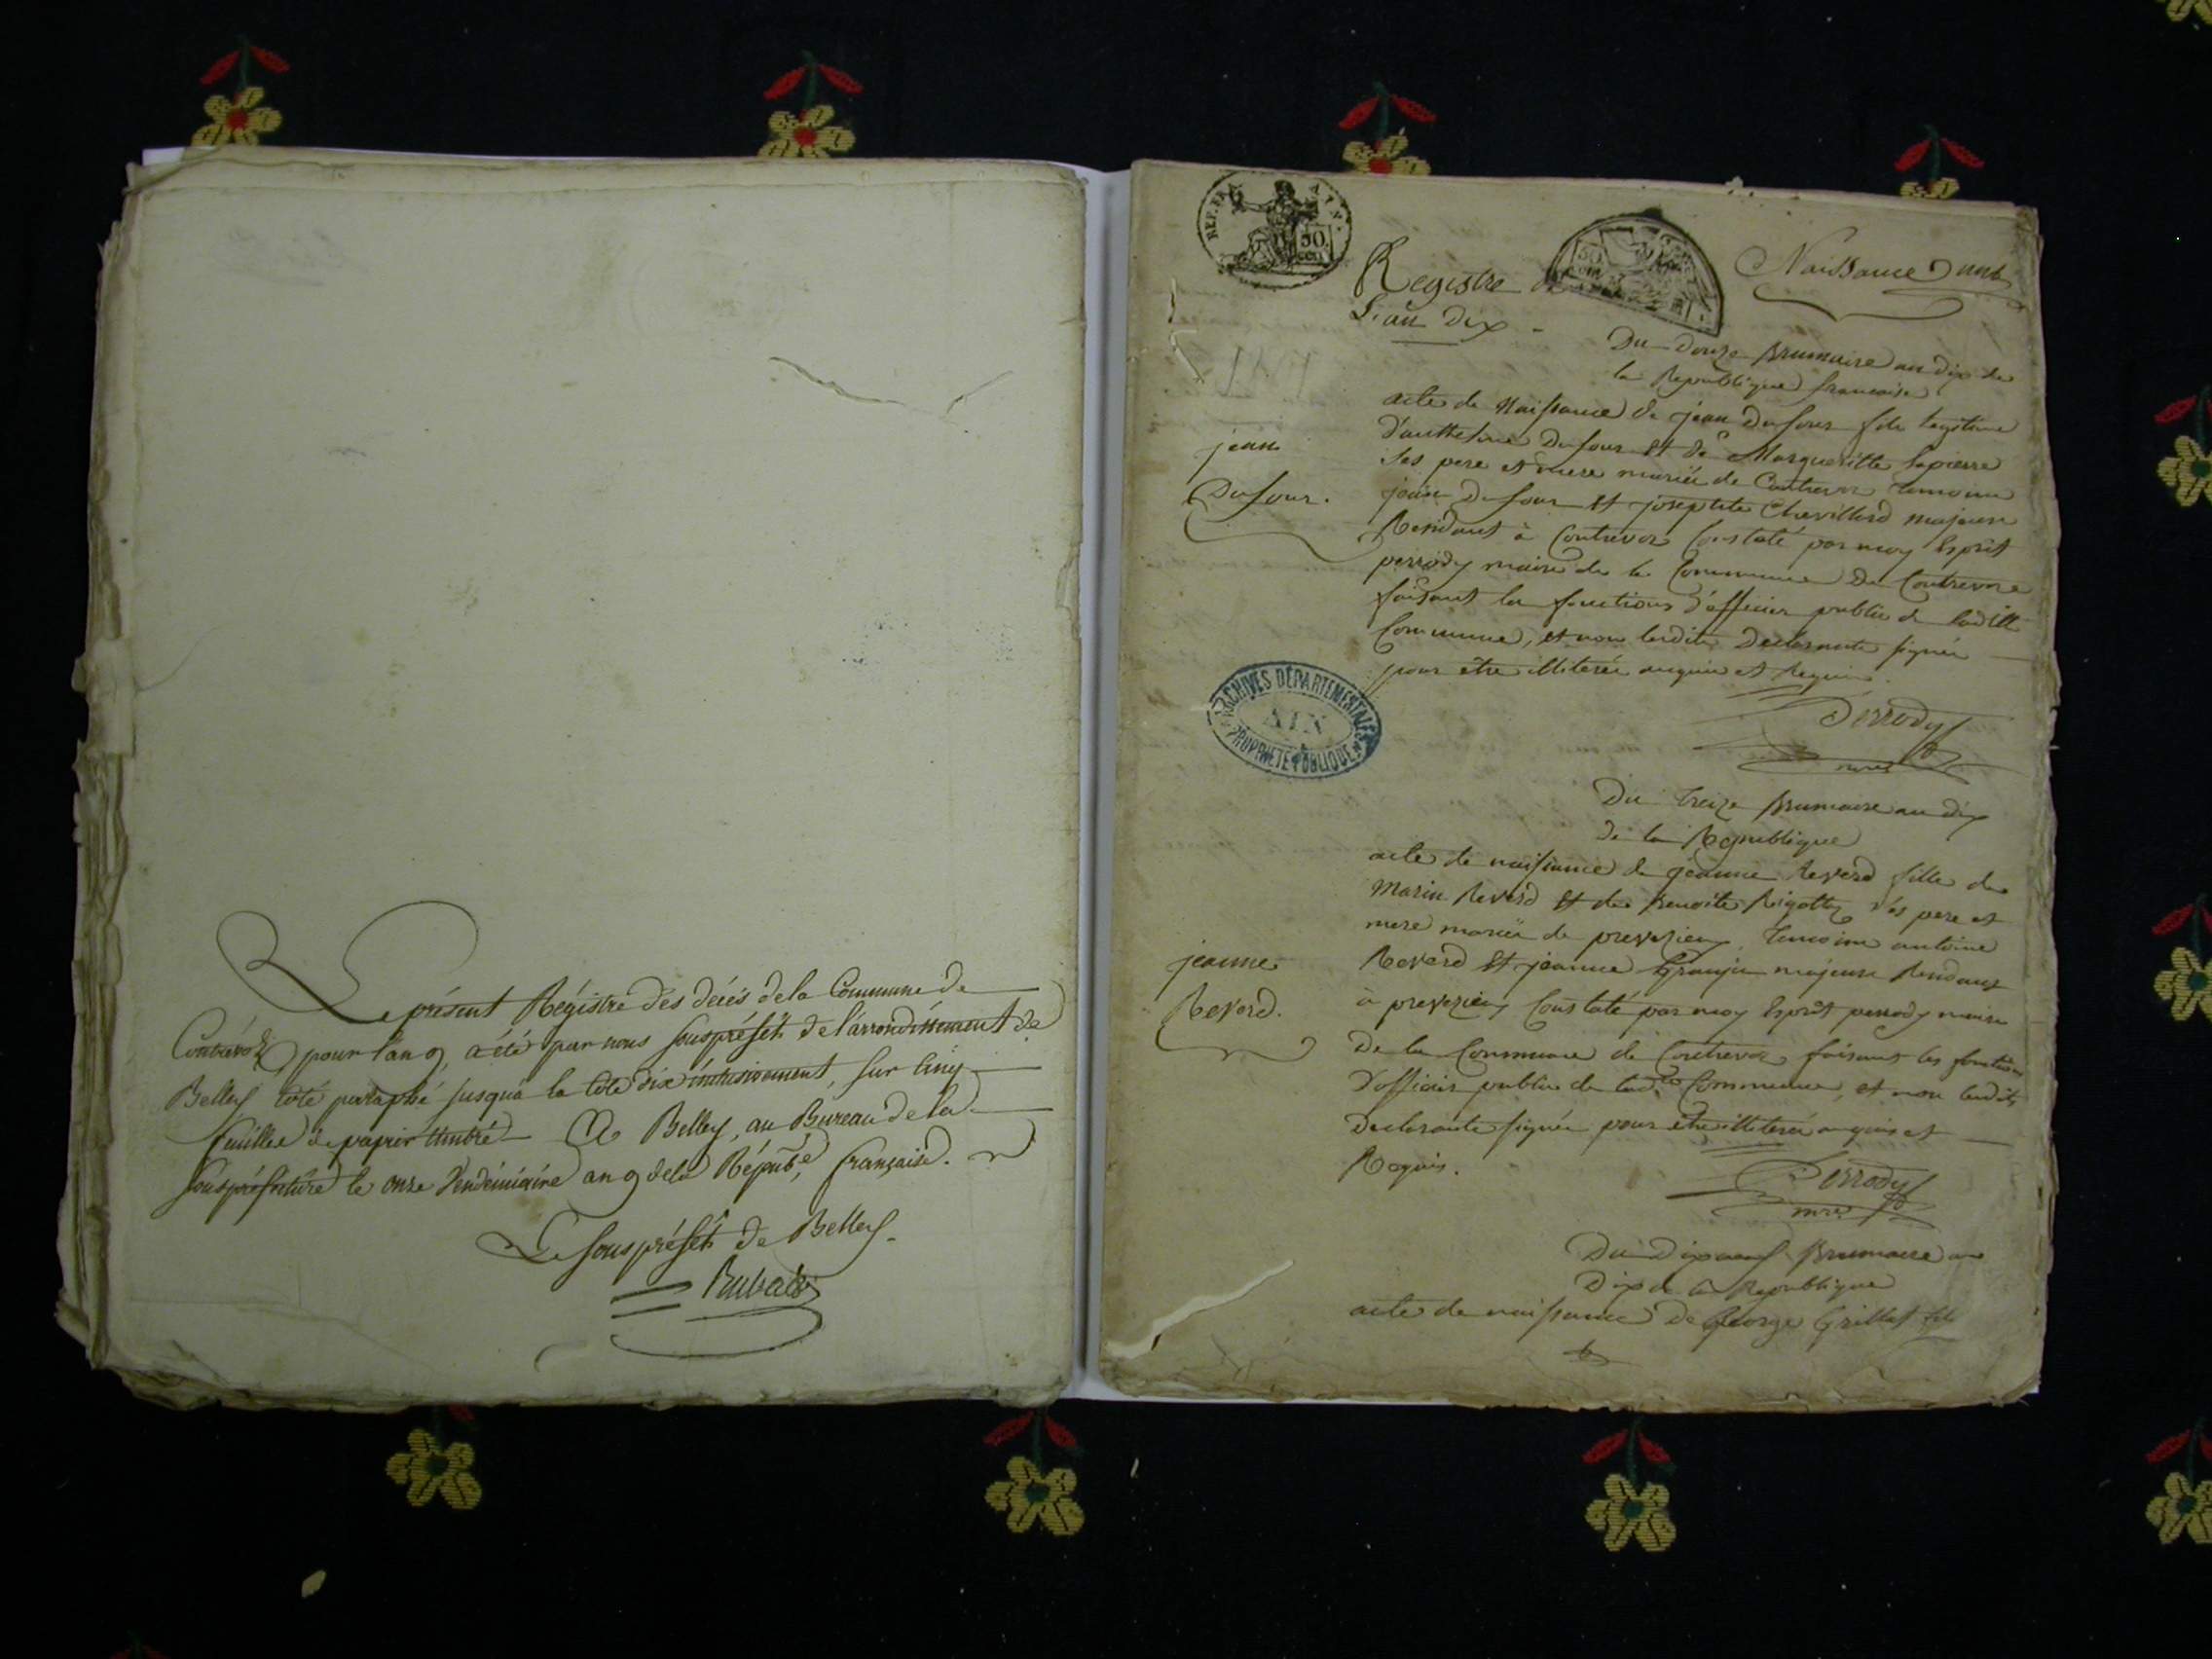 Le présent Régistre des décès de la Commune de
Contrevóz pour l'an 9, a été par nous sous préfet de l'arrondissement de
Belley coté paraphé jusqu'à la cote dix inclusivement, sur cinq
feuilles de papier timbré A Belley, au Bureau de la
sous préfecture le onze Vendémiaire an 9 de la Répub.e française.
Le sous préfet de Belley.
REP. FRA
AIN.
50.
Registre de Naissance
L'an Dix -
Du Douze Brumaire an dix de
la Republique francaise
acte de Naissance de jean Dufour fils legitime
d'anthelme Dufour et de Margueritte lapierre
ses pere et mere mariés de Contrevoz temoins
jean Dufour et josephte Chevillard majeurs
Residants à Contrevoz Constaté par moy Esprit
perrody maire de la Commune de Contrevoz
faisant les fonctions d'officier public de ladite
Commune, et non lesdits Declarants signés
pour être illiterés enquis et Requis.
jean
Dufour.
ARCHIVES DÉPARTEMENTALES
AIN
PROPRIÉTÉ PUBLIQUE
Perrody
mre
Du treize Brumaire an dix
de la Republique
acte de naissance de jeanne Reverd fille de
Marin Reverd et de Benoite Rigottz ses pere et
mere mariés de preveyzieu, temoins antoine
Reverd et jeanne Grinju majeurs Residants
à preveyzieu Constaté par moy Esprit perrody maire
De la Commune de Contrevoz faisant les fonctions
D'officier public de lad.te Commune, et non lesdits
Declarants signés pour etre illiterés enquis et
Requis.
jeanne
Reverd.
Perrody
mre
Du Dixneuf Brumaire an
Dix de la Republique
acte de naissance De George Grillet fils